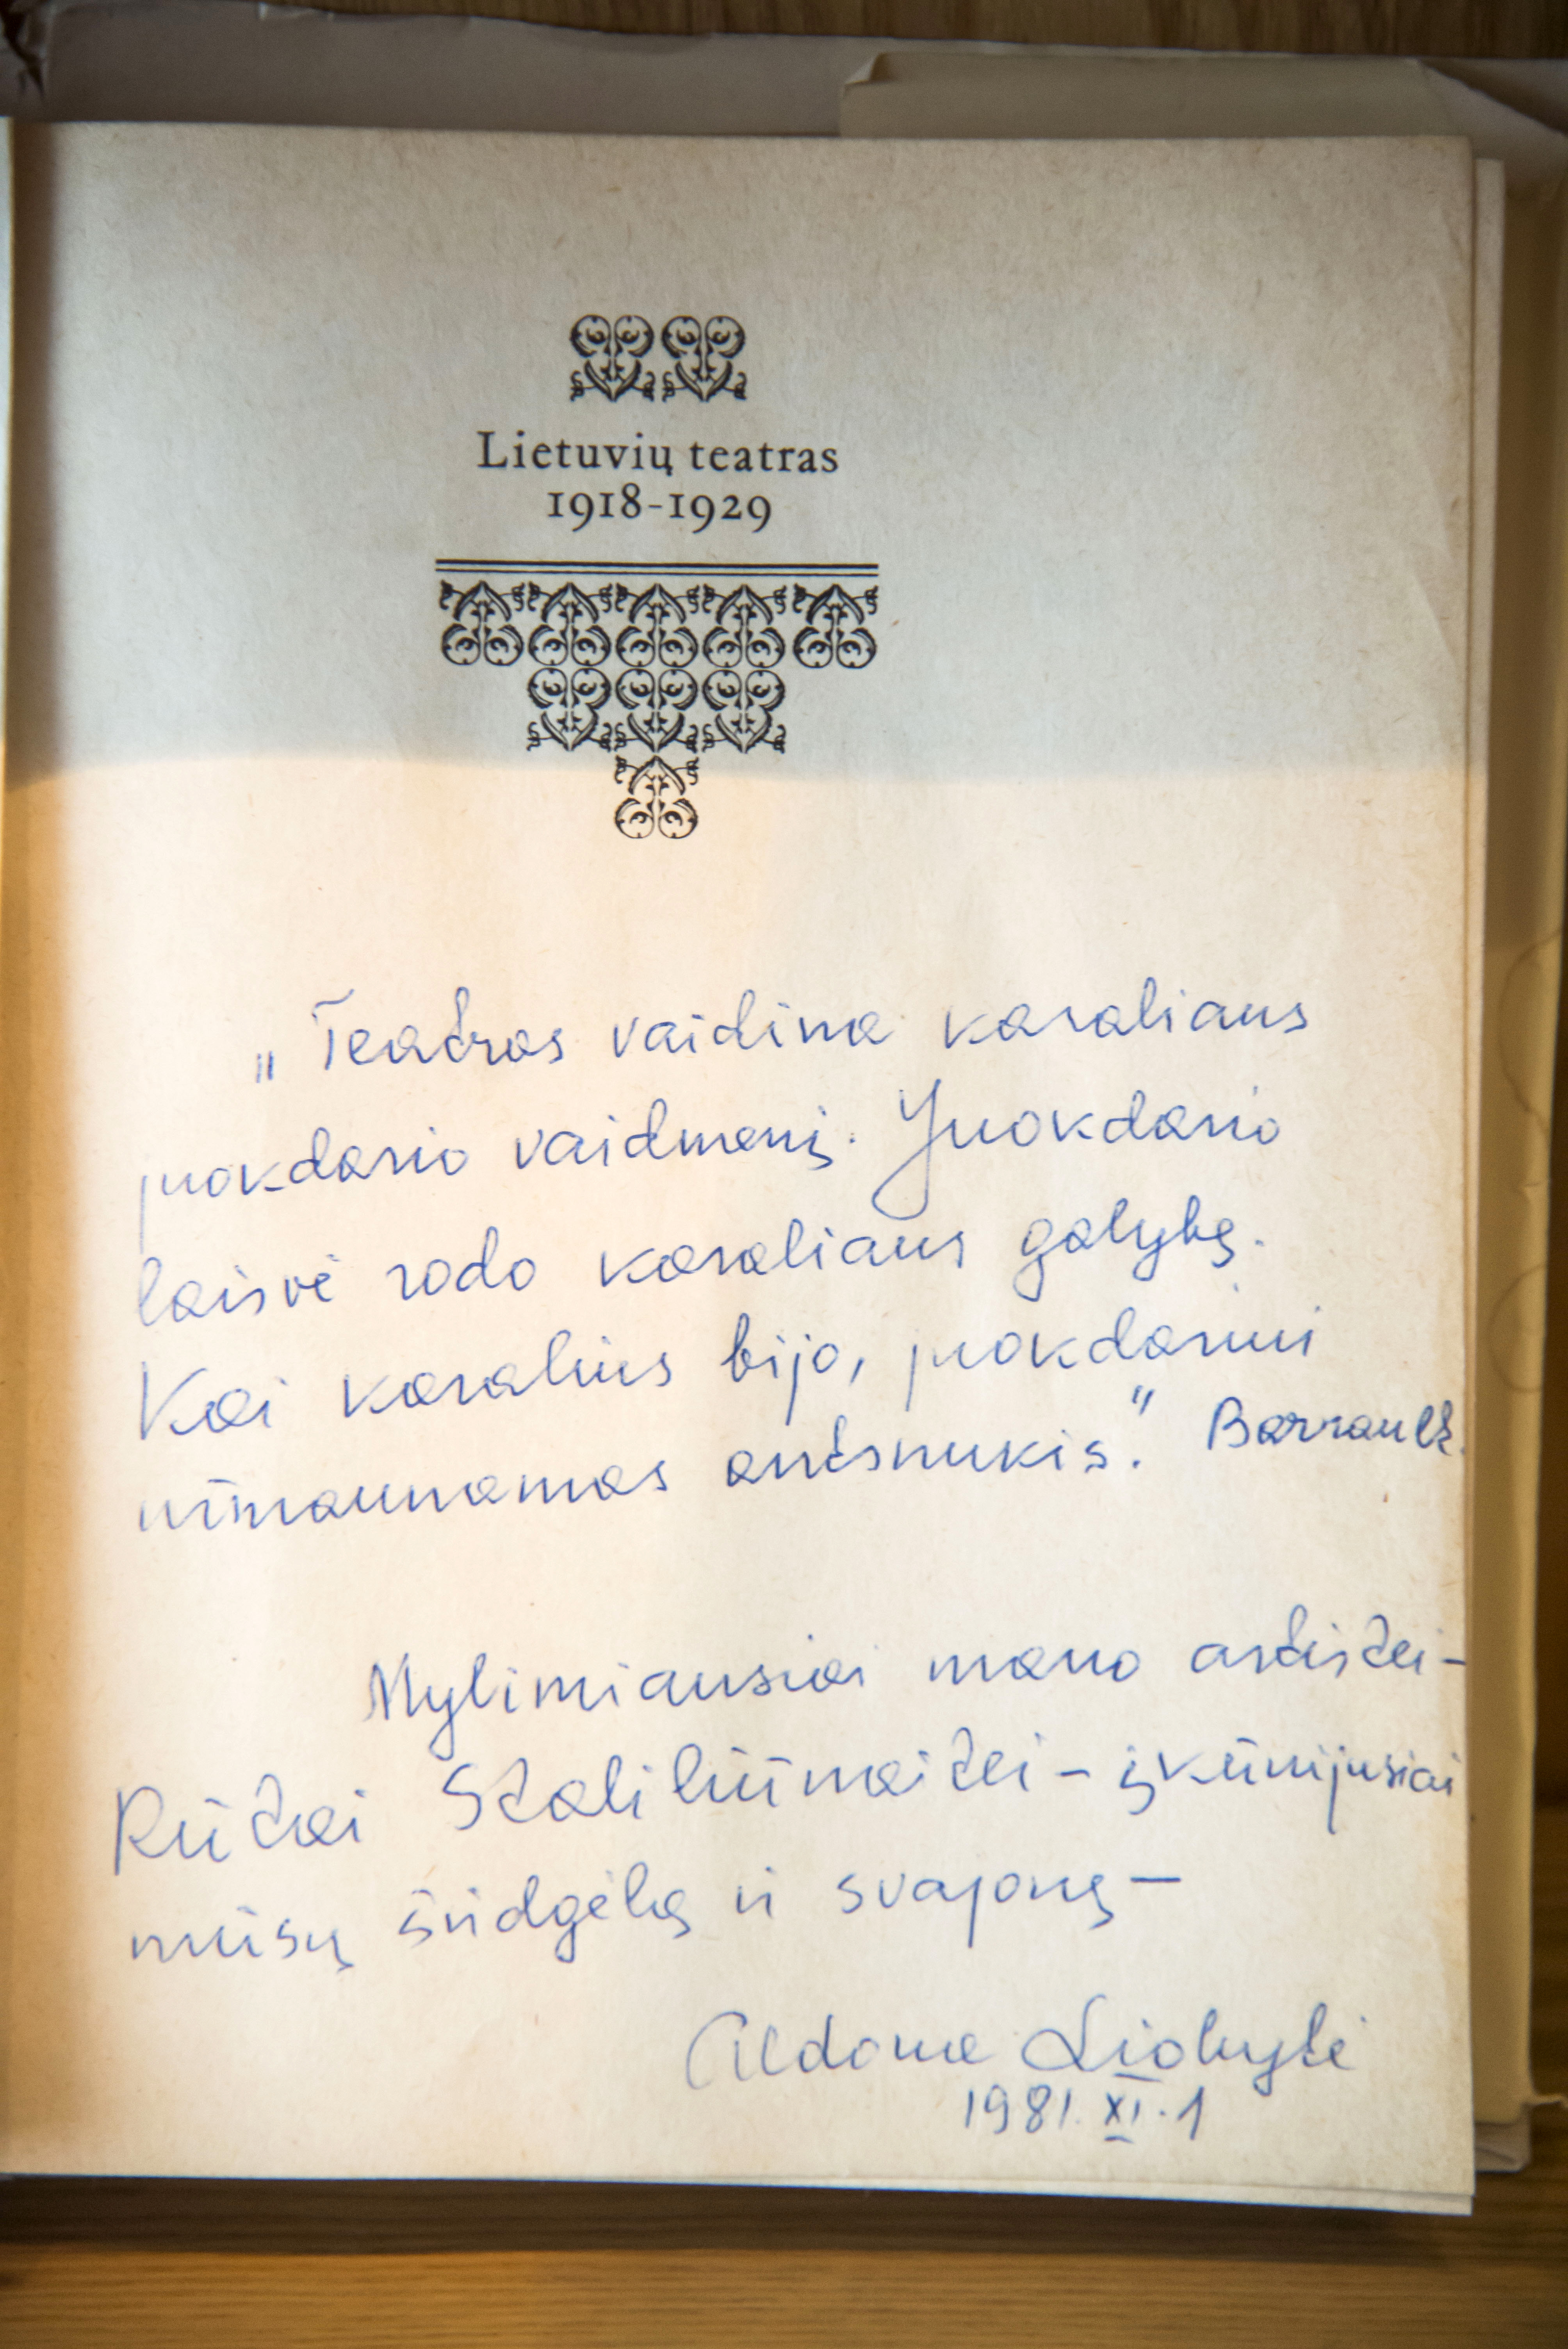 Lietuvių teatras
1918-1929
„Teatras vaidina karaliaus
juokdario vaidmenį. Juokdario
laisvė rodo karaliaus galybę.
Kai karalius bijo, juokdariui
užmaunamas antsnukis." Barrault.
Mylimiausiai mano artistei-
Rūtai Staliliūnaitei - įkūnijusiai
mūsų širdgėlą ir svajonę-
Aldona Liobytė
1981. XI. 1